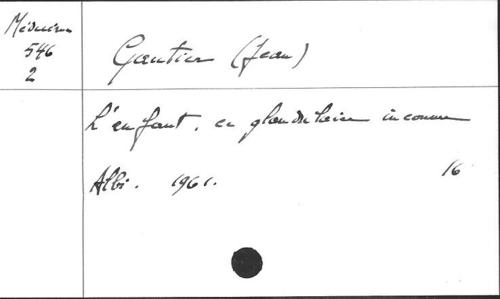 Médecine
546
2
Gautier (Jean)
L'enfant, ce glandulaire inconnu
Albi. 1961. 16